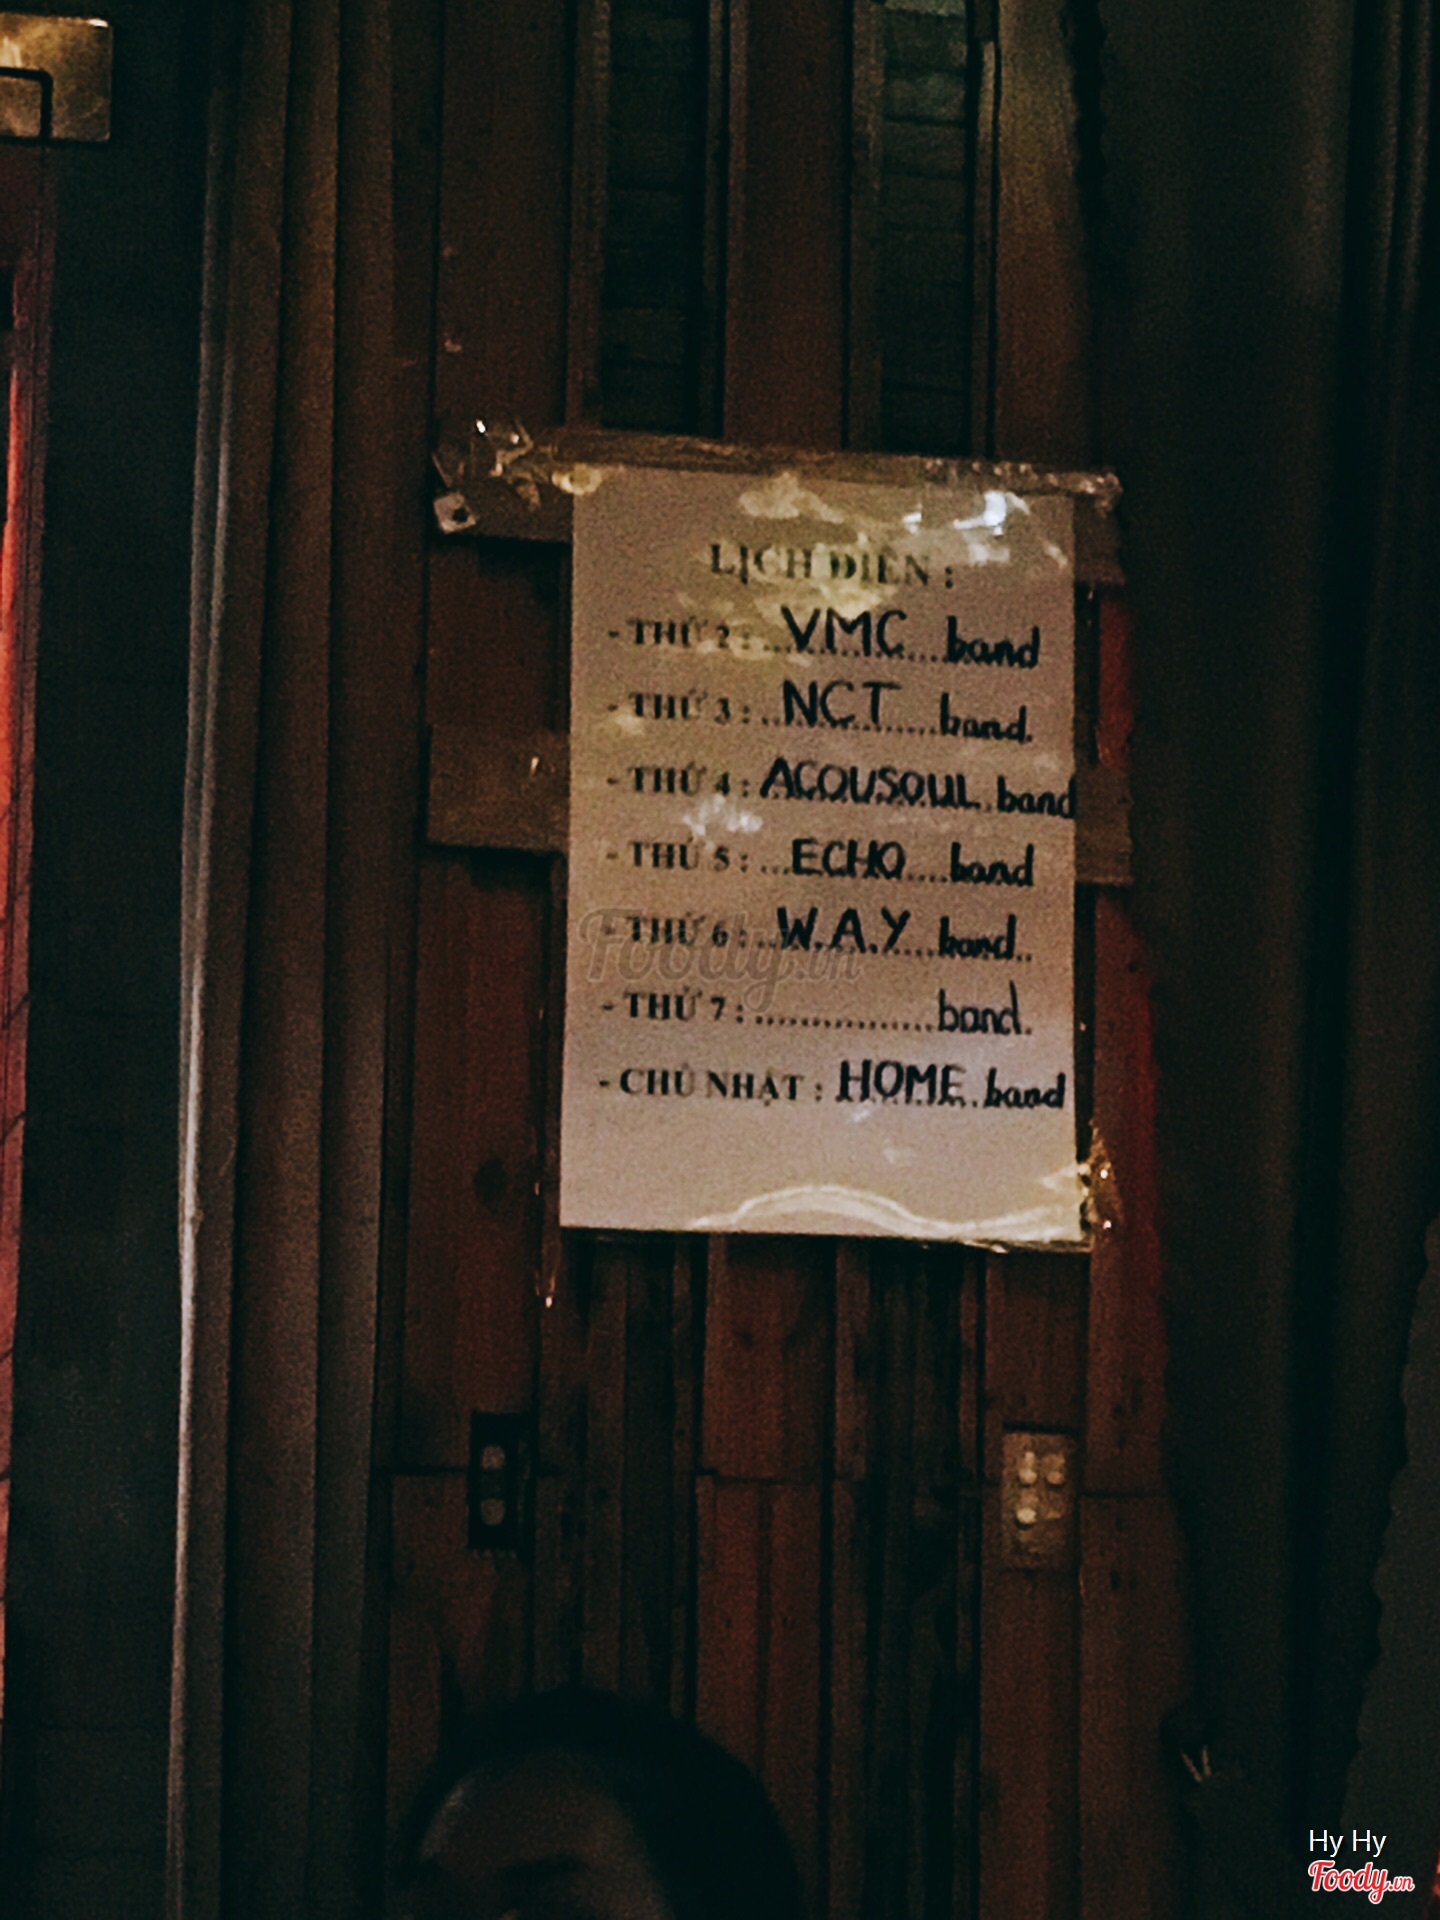 LỊCH DIỄN :
- THỨ 2 : ...VMC...band
- THỨ 3 : ..NCT......band.
- THỨ 4 : ACOUSOUL..band
- THỨ 5 : ...ECHO....band
- THỨ 6 : ..W.A.Y....band..
- THỨ 7 : ................band.
- CHỦ NHẬT : HOME..band
Foody.vn
Hy Hy
Foody.vn